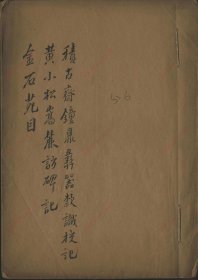 積古齋鐘鼎彝器款識校記
黃小松嵩麓訪碑記
金石苑目